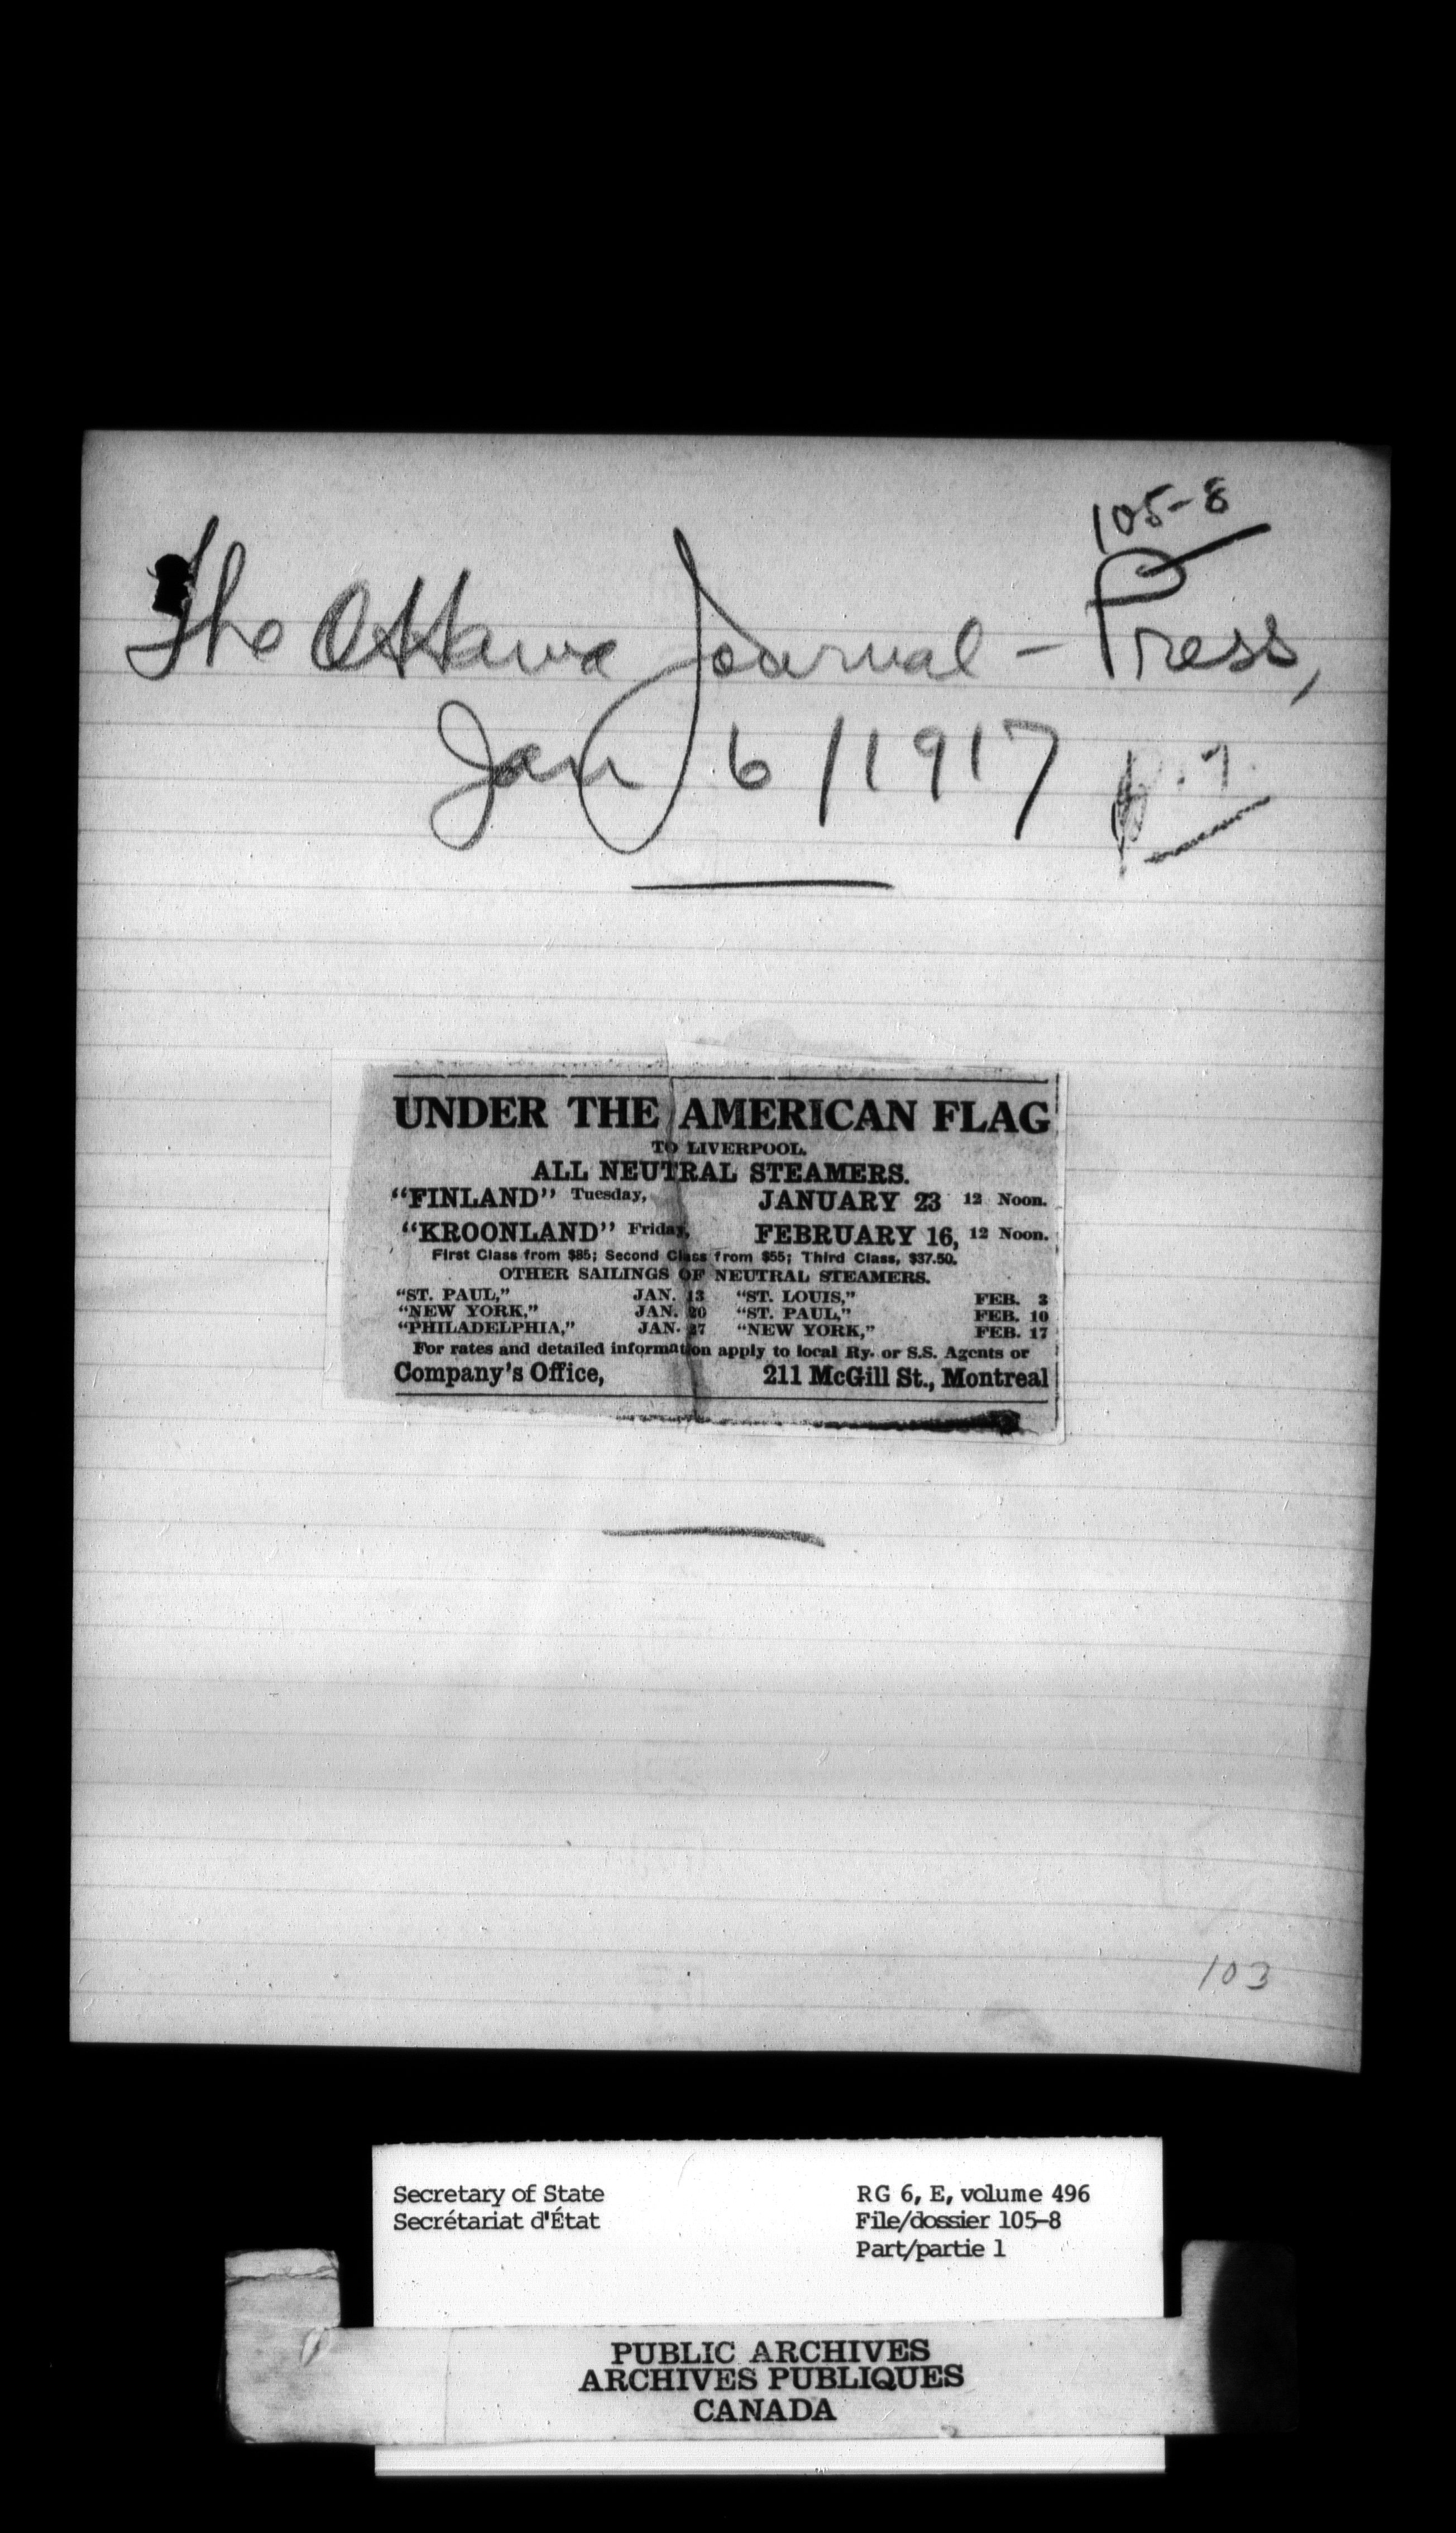 105-8
The Ottawa Journal - Press,
Jan 6/1917 p. 7.
UNDER THE AMERICAN FLAG
TO LIVERPOOL.
ALL NEUTRAL STEAMERS.
"FINLAND" Tuesday, JANUARY 23 12 Noon.
"KROONLAND" Friday, FEBRUARY 16, 12 Noon.
First Class from $85; Second Class from $55; Third Class, $37.50.
OTHER SAILINGS OF NEUTRAL STEAMERS.
"ST. PAUL," JAN. 13 "ST. LOUIS," FEB. 3
"NEW YORK," JAN. 20 "ST. PAUL," FEB. 10
"PHILADELPHIA," JAN. 27 "NEW YORK," FEB. 17
For rates and detailed information apply to local Ry. or S.S. Agents or
Company's Office, 211 McGill St., Montreal
103
Secretary of State RG 6, E, volume 496
Secrétariat d'État File/dossier 105-8
Part/partie 1
PUBLIC ARCHIVES
ARCHIVES PUBLIQUES
CANADA